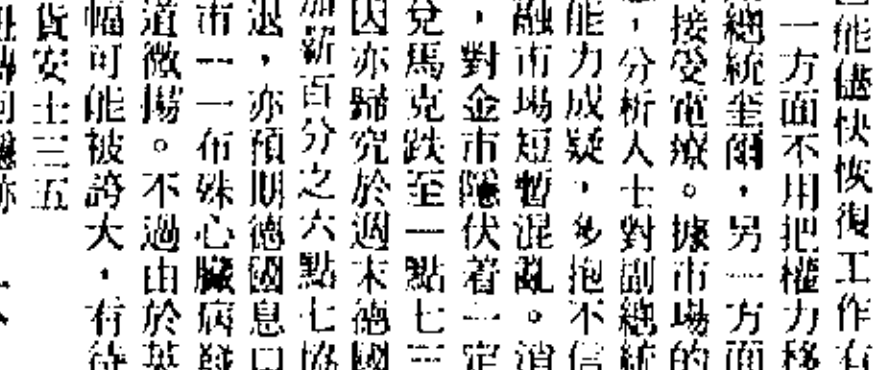 能儘快恢復工作有
一方面不用把權力移
總統奎爾，另一方面
接受電療。據市場的
，分析人士對副總統
能力成疑，多抱不信
融市場短暫混亂。消
，對金市隱伏着一定
兌馬克跌至一點七三
因亦歸究於週末德國
加薪百分之六點七協
退，亦預期德國息口
市一一布殊心臟病發
道微揚。不過由於英
幅可能被誇大，有待
貨安士三五